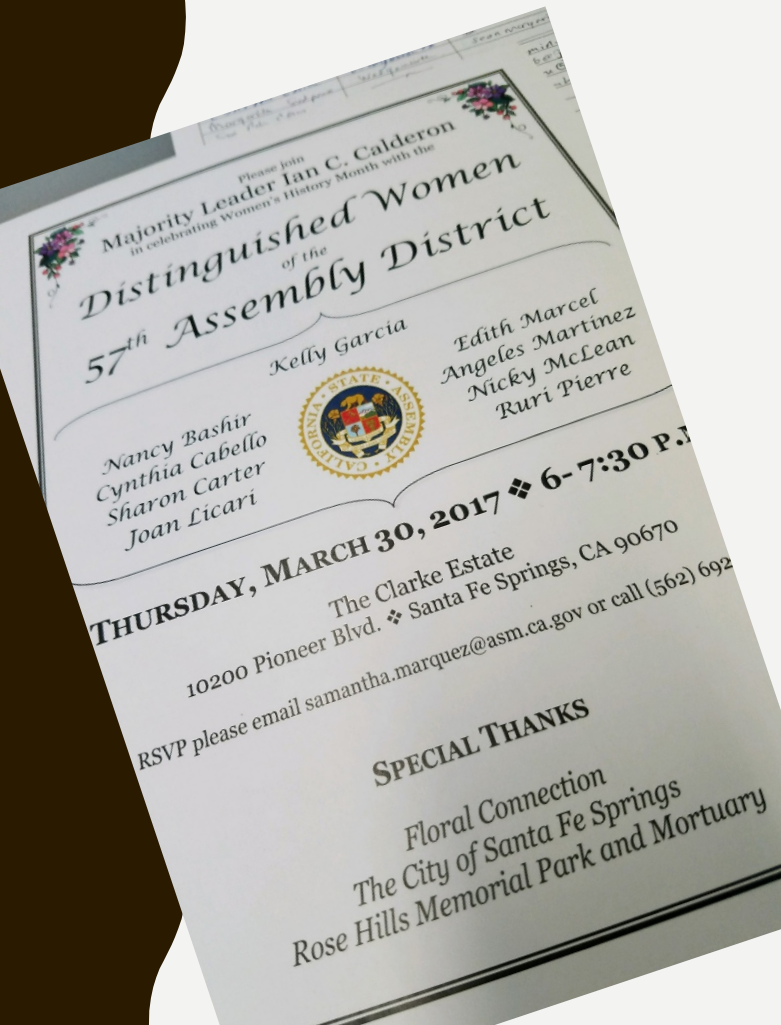 Please join
Majority Leader Ian C. Calderon
in celebrating Women's History Month with the
Distinguished Women
of the
57th Assembly District
Kelly Garcia
Nancy Bashir
Cynthia Cabello
Sharon Carter
Joan Licari
Edith Marcel
Angeles Martinez
Nicky McLean
Ruri Pierre
CALIFORNIA STATE ASSEMBLY
THURSDAY, MARCH 30, 2017 ❖ 6- 7:30 P.
The Clarke Estate
10200 Pioneer Blvd. ❖ Santa Fe Springs, CA 90670
RSVP please email samantha.marquez@asm.ca.gov or call (562) 692
SPECIAL THANKS
Floral Connection
The City of Santa Fe Springs
Rose Hills Memorial Park and Mortuary